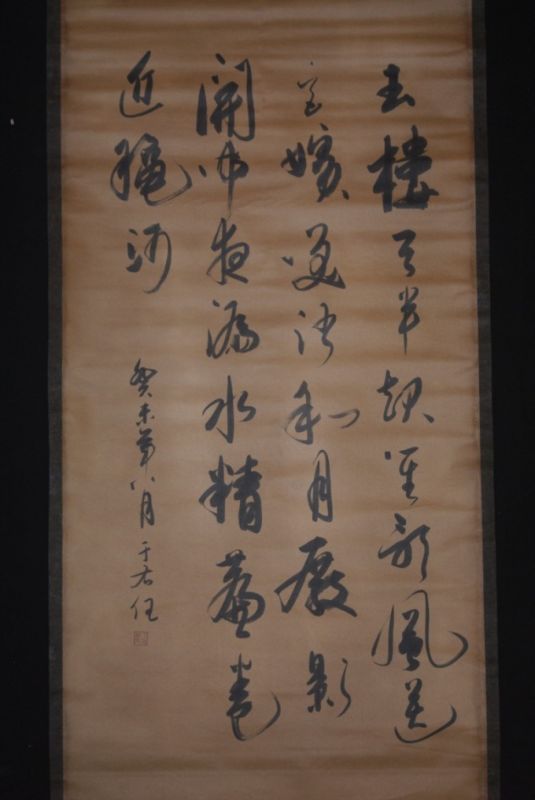 玉樓天半起笙歌風送
宮嬪咲語和月殿影
開聞夜漏水精簾卷
近穐河
癸未年八月于右任